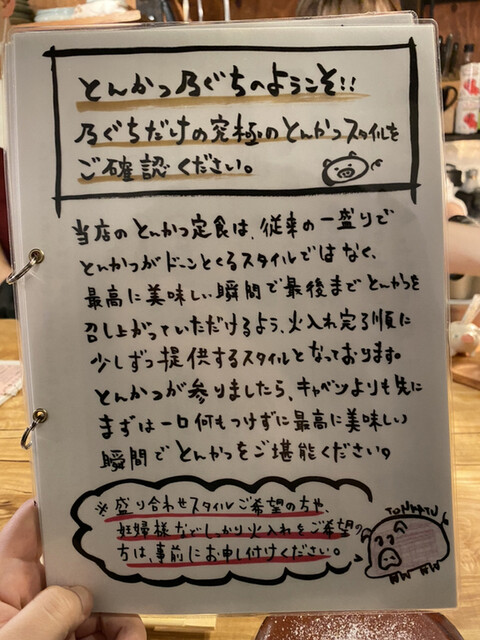 とんかつ乃ぐちへようこそ!!
乃ぐちだけの究極のとんかつスタイルを
ご確認ください。
当店のとんかつ定食は、従来の一盛りで
とんかつがドーンとくるスタイルではなく、
最高に美味しい瞬間で最後までとんかつを
召し上がっていただけるよう、火入れ完了順に
少しずつ提供するスタイルとなっております。
とんかつが参りましたら、キャベツよりも先に
まずは一口何もつけずに最高に美味しい
瞬間でとんかつをご堪能ください。
※盛り合わせスタイルご希望の方や、
妊婦様などしっかり火入れをご希望の
方は、事前にお申し付けください。
TONKATU